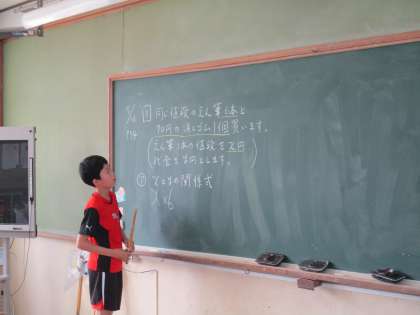 5/6 問 同じ値段のえん筆6本と
P14 90円の消しゴム1個買います。
(えん筆1本の値段をx円
代金をy円とします。)
① xとyの関係式
x×6